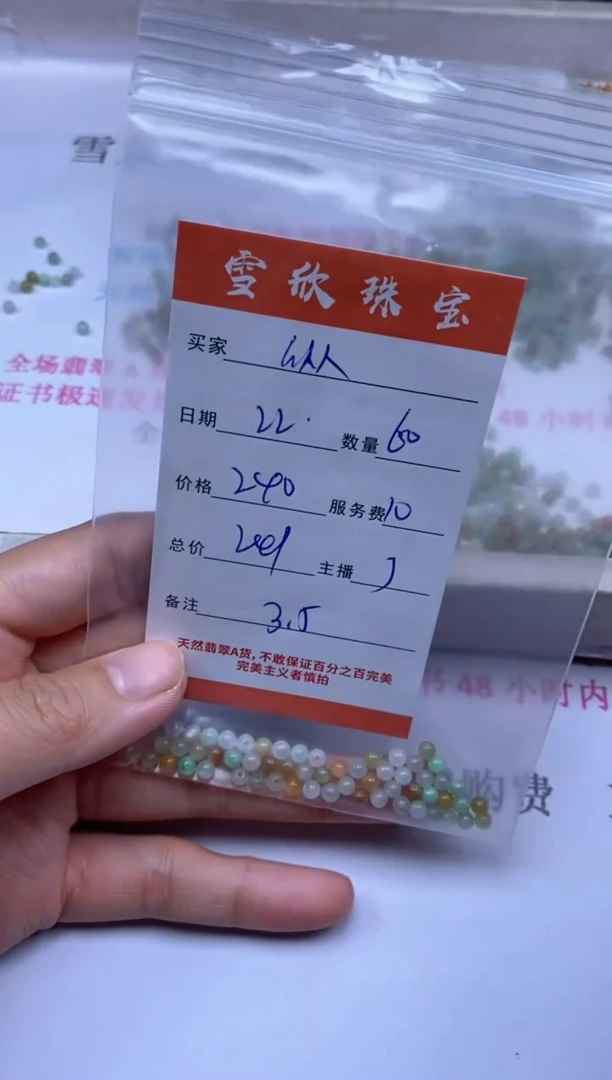 雪
雪欣珠宝
买家
日期 22. 数量 60
价格 240 服务费 10
总价 主播
备注 3.5
天然翡翠A货，不敢保证百分之百完美
完美主义者慎拍
全场翡翠A
证书极速发
48小时
书48小时内
购费